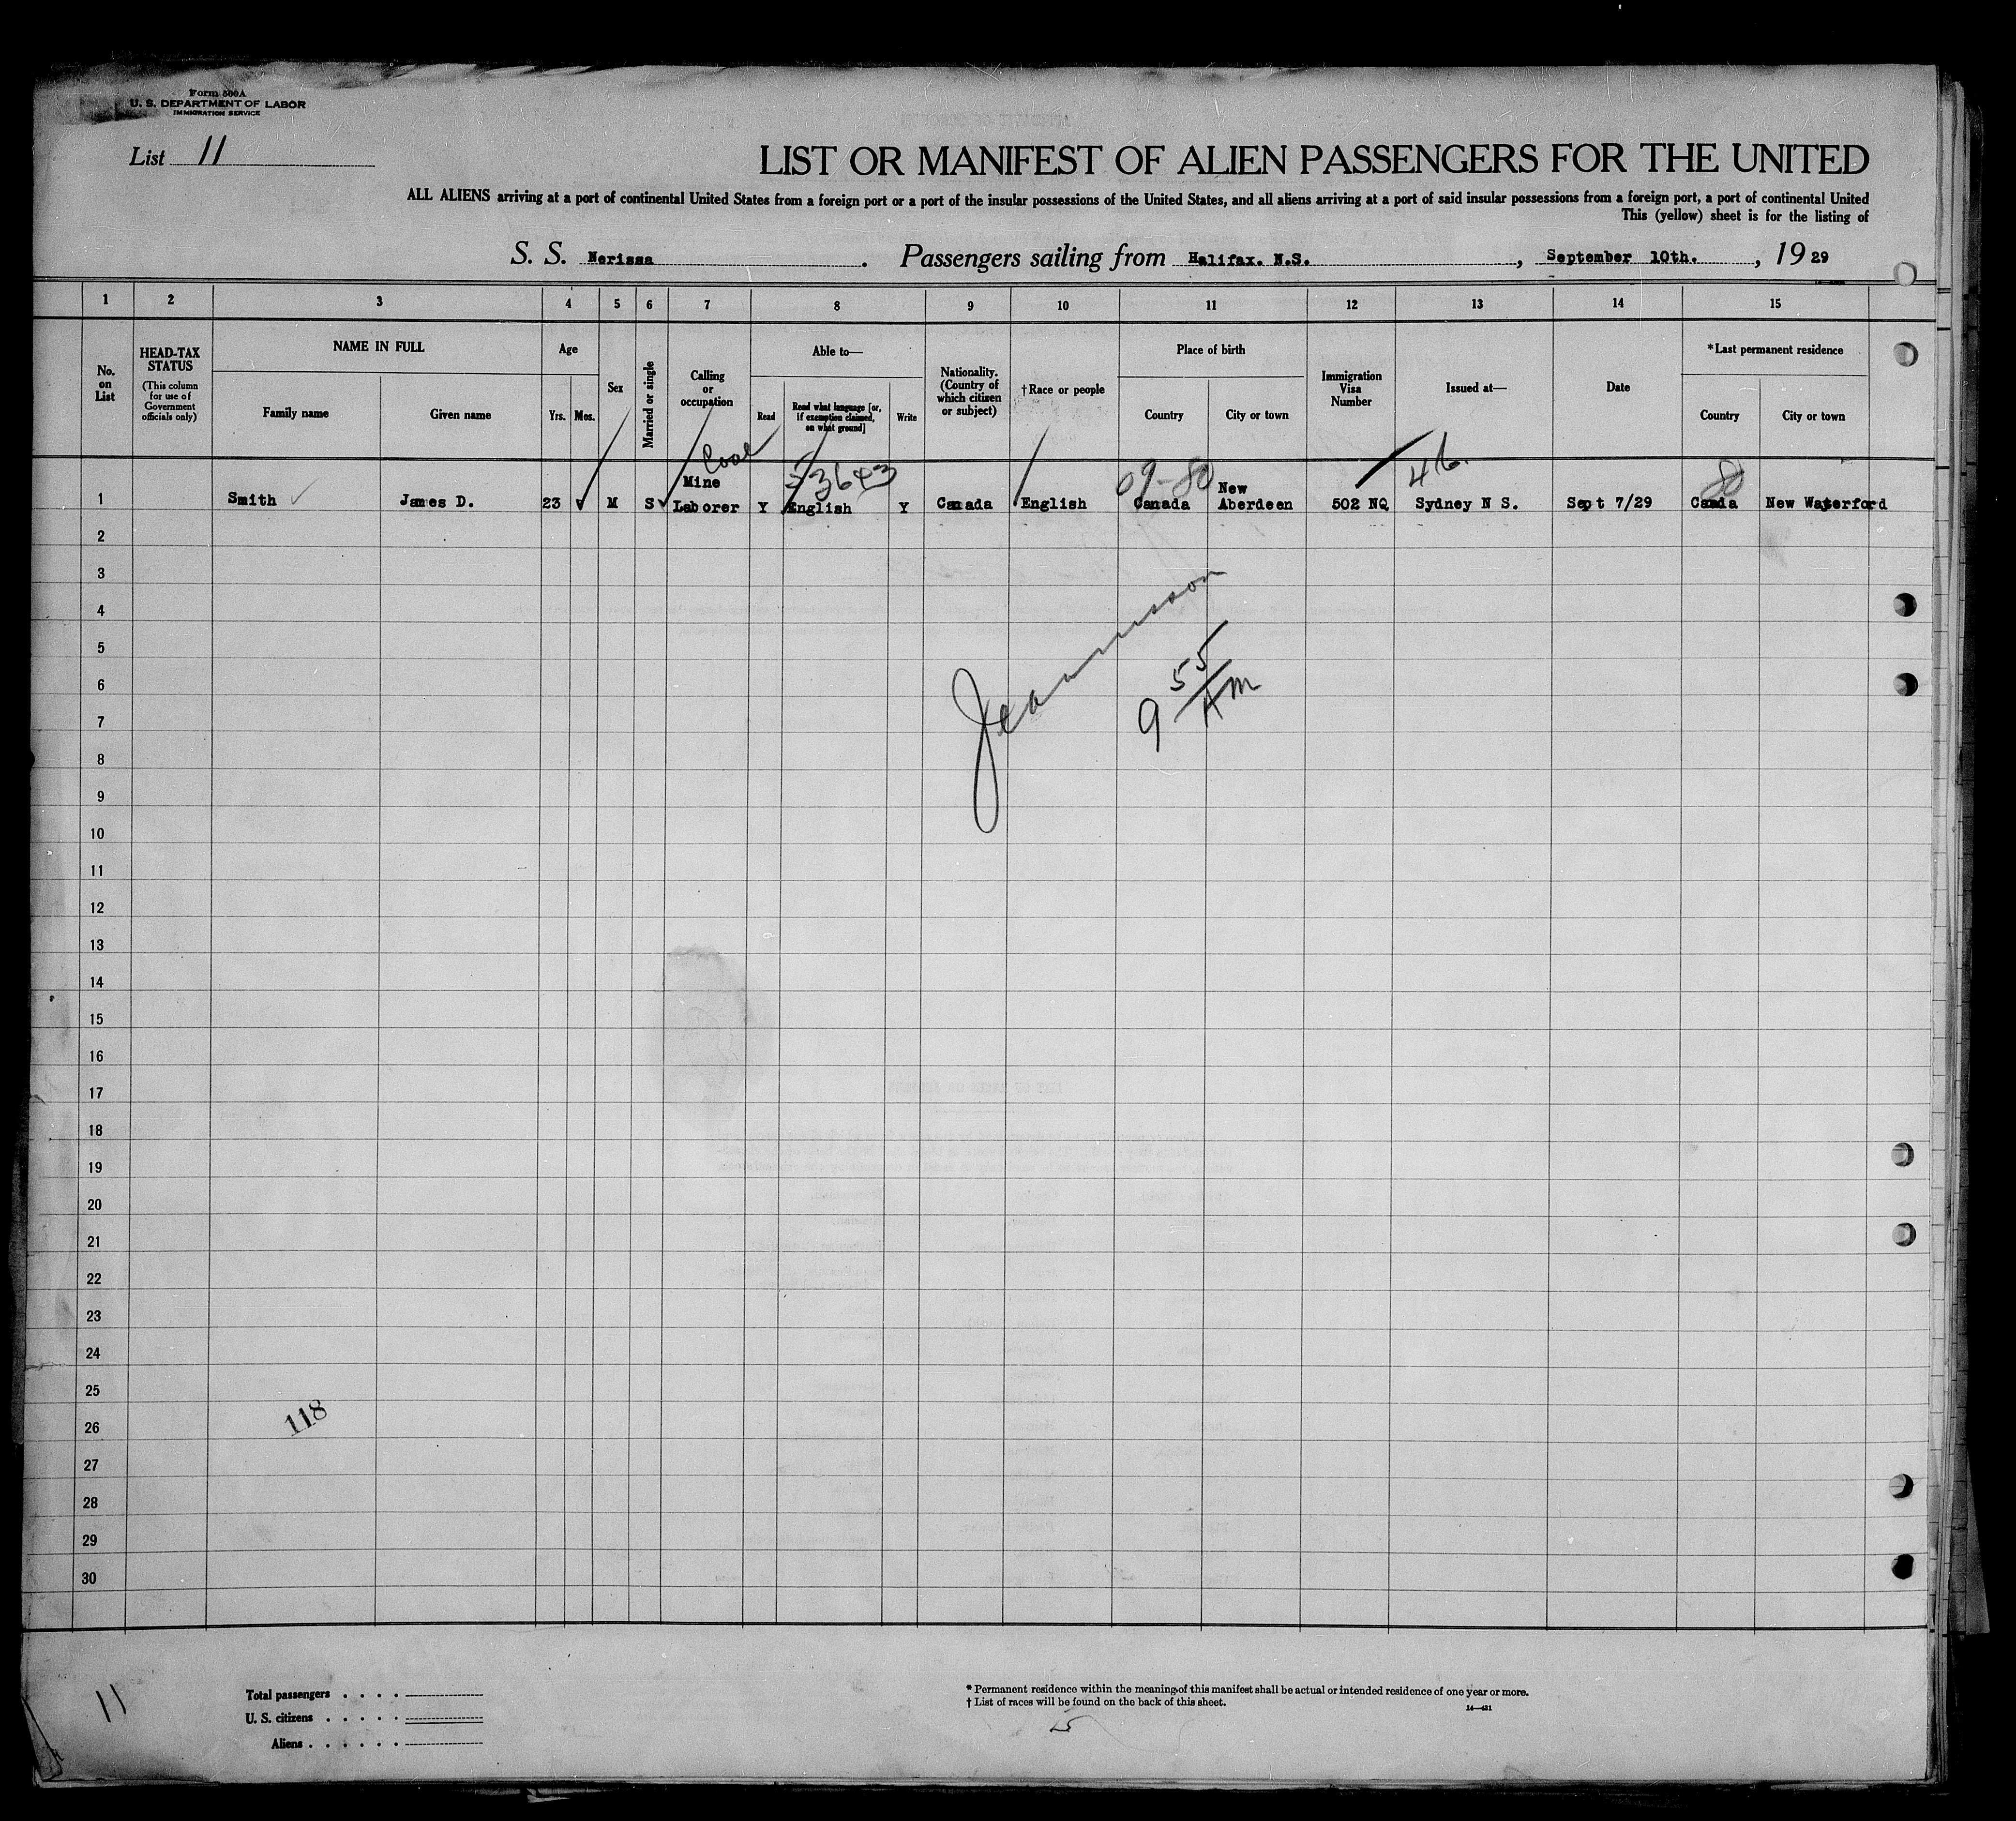 Form 500A
U. S. DEPARTMENT OF LABOR
IMMIGRATION SERVICE
List 11
LIST OR MANIFEST OF ALIEN PASSENGERS FOR THE UNITED
ALL ALIENS arriving at a port of continental United States from a foreign port or a port of the insular possessions of the United States, and all aliens arriving at a port of said insular possessions from a foreign port, a port of continental United
This (yellow) sheet is for the listing of
S. S. Nerissa. Passengers sailing from Halifax. N.S., September 10th., 1929
1 2 3 4 5 6 7 8 9 10 11 12 13 14 15
No. on List
HEAD-TAX STATUS
(This column for use of Government officials only)
NAME IN FULL
Family name Given name
Age
Yrs. Mos.
Sex
Married or single
Calling or occupation
Able to—
Read
Read what language [or, if exemption claimed, on what ground]
Write
Nationality. (Country of which citizen or subject)
†Race or people
Place of birth
Country City or town
Immigration Visa Number
Issued at—
Date
*Last permanent residence
Country City or town
Coal
53643
09-80
46.
80
1 Smith James D. 23 M S Mine Laborer Y English Y Canada English Canada New Aberdeen 502 NQ Sydney N S. Sept 7/29 Canada New Waterford
2
3
4
5
6
7
8
9
10
11
12
13
14
15
16
17
18
19
20
21
22
23
24
25
26
27
28
29
30
9 55 AM
118
11
Total passengers . . . .
U. S. citizens . . . . .
Aliens . . . . . .
* Permanent residence within the meaning of this manifest shall be actual or intended residence of one year or more.
† List of races will be found on the back of this sheet.
14—431